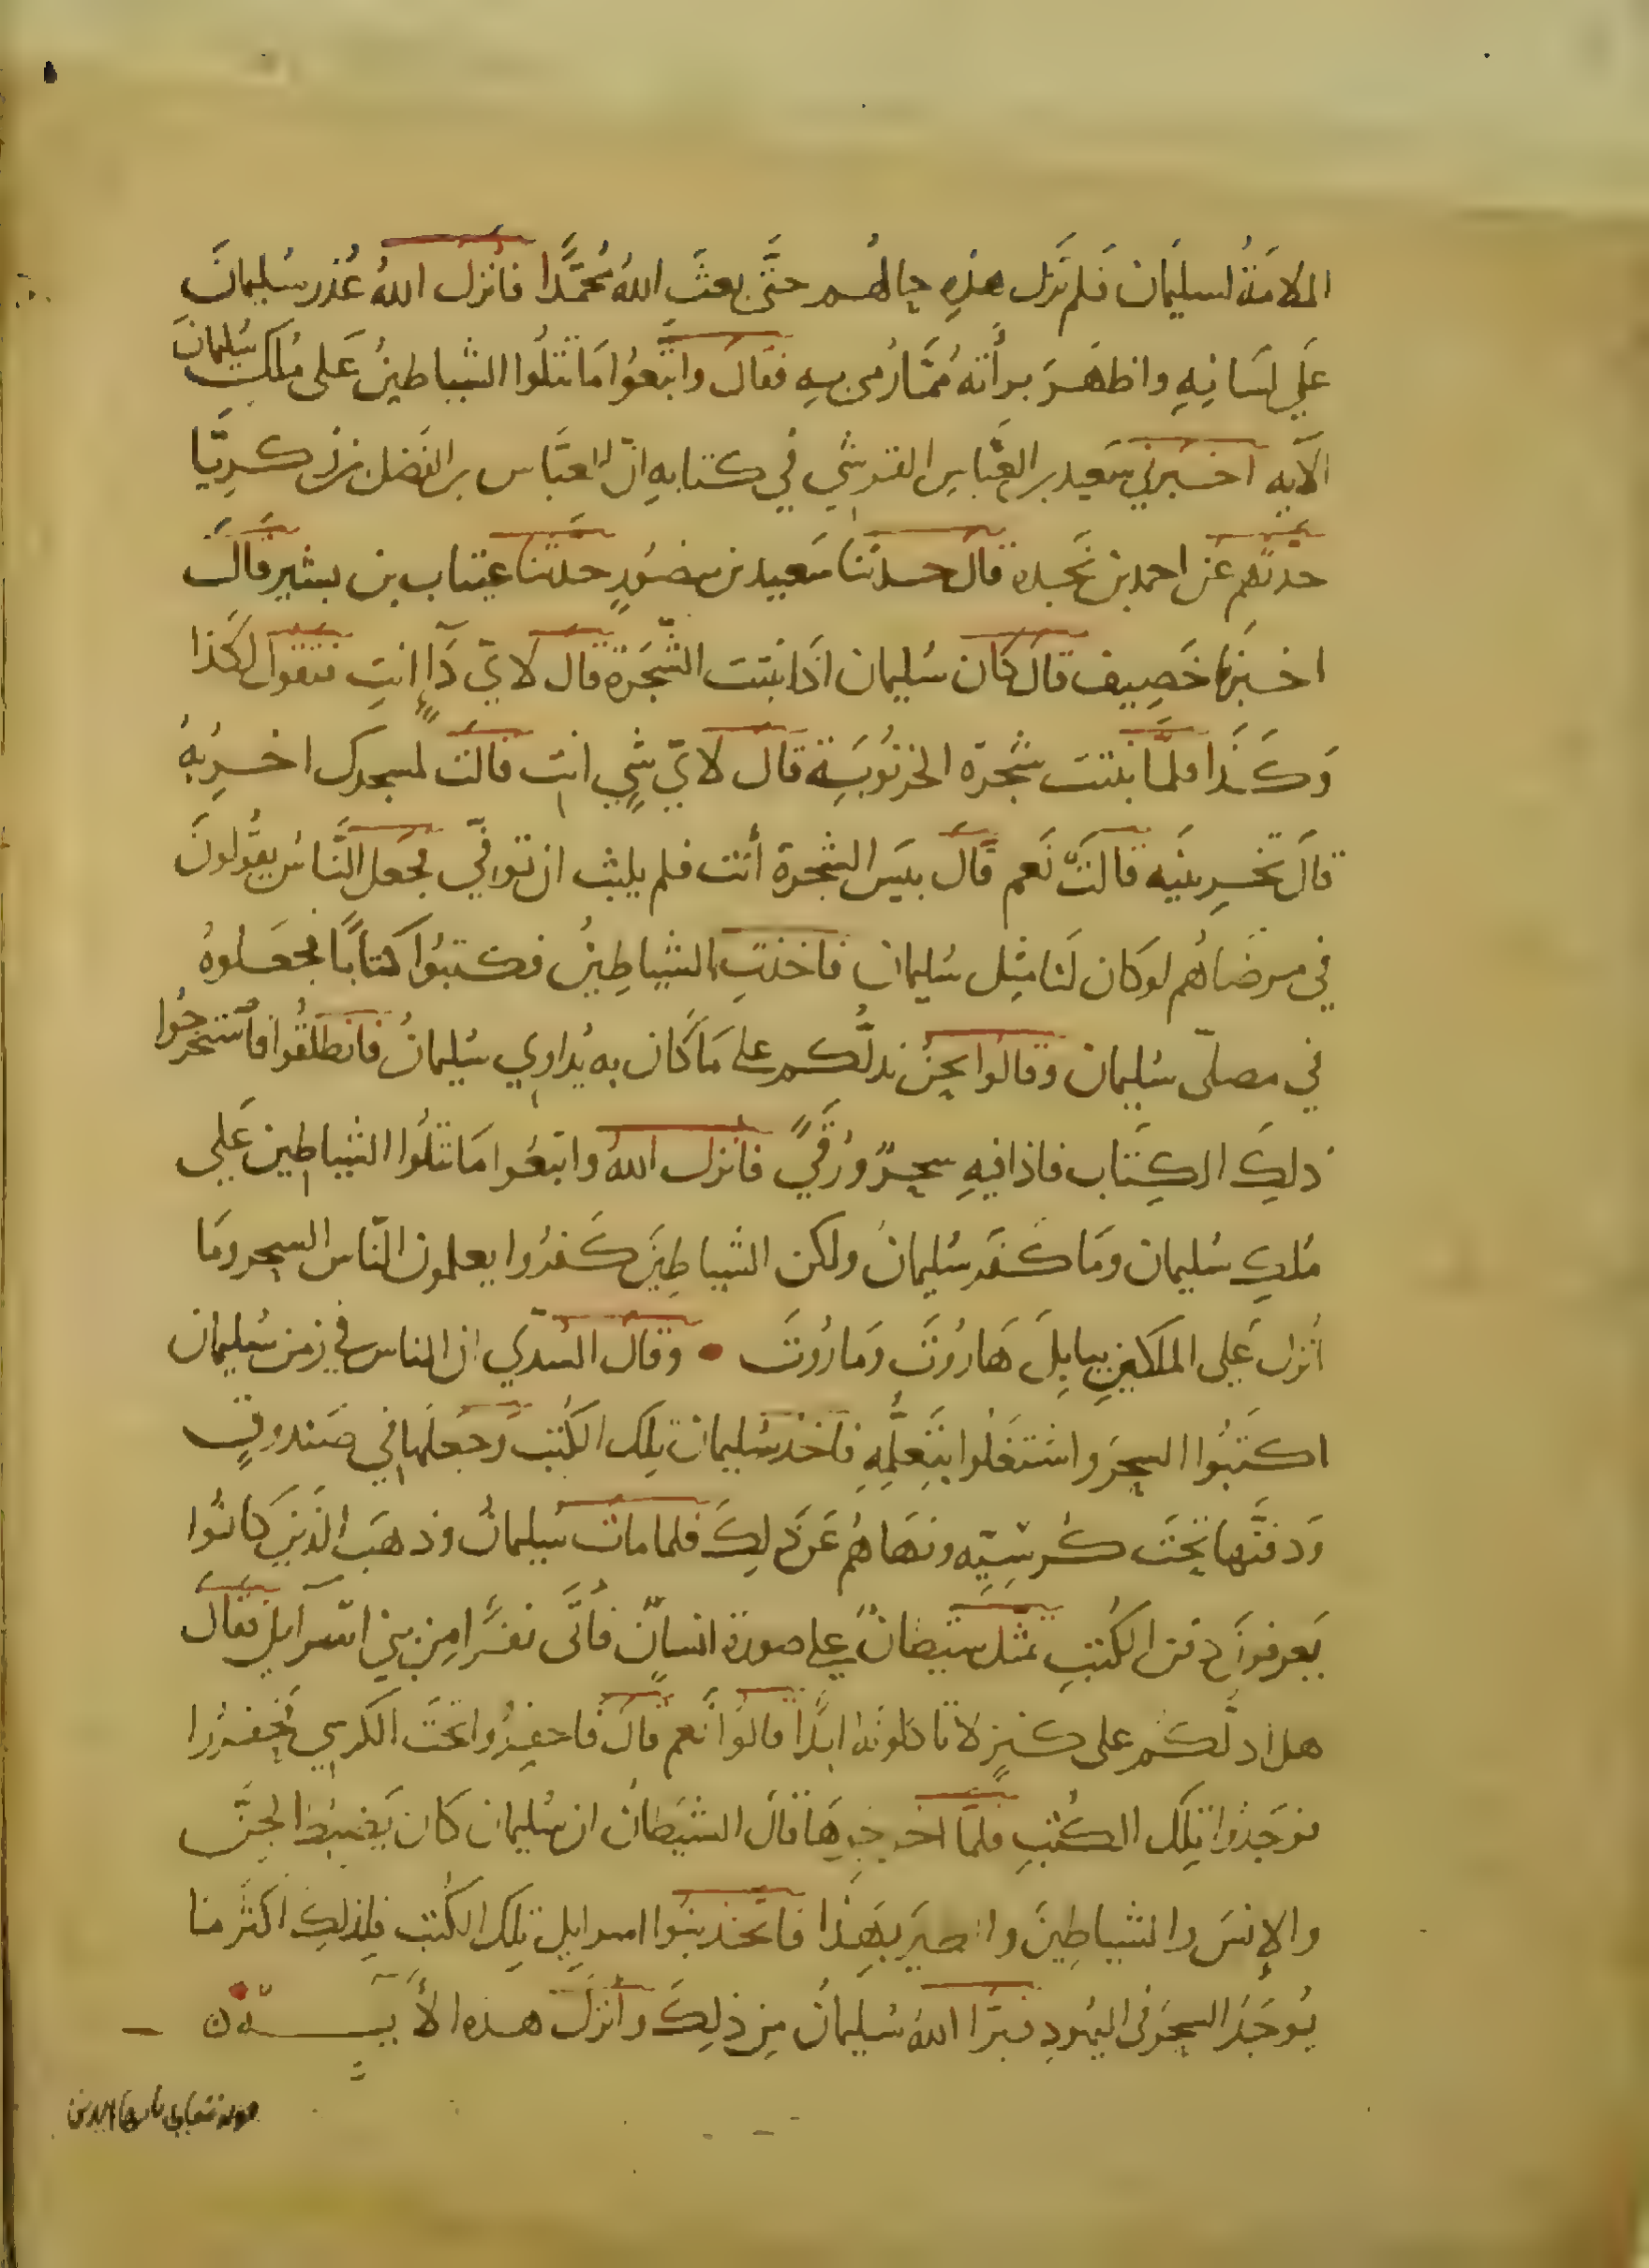 الملامَةُ لسليمان فَلم تَزل هذِهِ حالهُم حتَّى بعثَ اللهُ مُحَمَّدًا فأنزل اللهُ عُذر سُليمانَ
عَلي لسَانِهِ واظهَرَ برأتهُ مُمّا رُمى بِهِ فقال واتبَعُوا مَا تتلُوا الشياطينُ عَلى مُلكِ سُليمانَ
الآيه اخبَرني سَعيد بن العَبّاسِ القرشي في كتابِهِ ان العبَّاس بن الفَضل بن زكريّا
حدثهم عَن احمد بن نَجده قال حدثنا سَعيد بن منصُورٍ حدّثنا عتاب بن بشير قالَ
اخبرَنا خَصِيف قال كان سُليمان اذَا نبتت الشّجَرَة قال لايّ دَآءٍ انتِ فتقول لكَذا
وَكَذَا فلمَّا نبتت شَجرَة الخرنُوبَةِ قالَ لايّ شيءٍ انتِ قالت لمسجدك اخربُهُ
قالَ تخرِبينَه قالتّ نَعم قَالَ بيسَ الشجرة أنت فلم يلبث ان توفّي فجَعل النَّاسُ يقُولونَ
في مرضَاهُم لو كان لنَا مثِل سُليمان فاخذتِ الشياطِينُ فكتبُوا كتابًا فجعَلوهُ
في مصلّى سُليمان وقالُوا نحنُ ندلُّكم على مَا كَان به يُداوِي سُليمانُ فانطلَقُوا فاستخرجُوا
ذلكَ الكِتَاب فاذا فيهِ سحرٌ ورُقًي فانزل اللهُ واتبَعُوا مَا تتلُوا الشياطين عَلي
مُلكِ سُليمان ومَا كفَر سُليمانُ ولكن الشياطِينَ كَفرُوا يعلمون النّاس السحر ومَا
أنزل عَلي الملكَينِ ببابِلَ هَارُوتَ ومَارُوتَ • وقال السُدّي ان الناس في زمن سُليمان
اكتبُوا السحرَ واشتغَلُوا بتعلّمِهِ فاخذ سُليمان تِلك الكُتبَ وجعلَها في صَندوقٍ
وَدفنَها تحتَ كُرسيّه ونهَاهُم عَن ذلِكَ فلما مات سُليمانُ وذهبَ الذَين كانُوا
يَعرفونَ دفن الكُتبِ تمثل شيطَانٌ على صورة انسانٍ فأتَى نفرًا مِن بني اسرايل فقالَ
هل ادلّكُم على كنزٍ لا تاكلونَه ابدًا قالوُا نَعم قال فاحفِرُوا تحتَ الكرسي فَحفرُوا
فوَجدُوا تِلك الكُتبِ فلمَّا اخرجوهَا قال الشيطانُ ان سُليمان كَان يَضبطُ الجنَّ
والإنسَ والشياطِينَ والطيرَ بهَذا فاتخذ بنوُا اسرايل تِلكَ الكُتبَ فلِذلكَ اكثر مَا
يُوجَدُ السحرُ في اليَهودِ فبرّا اللهُ سُليمانَ مِن ذلِكَ وأنزَلَ هذه الأيـــة